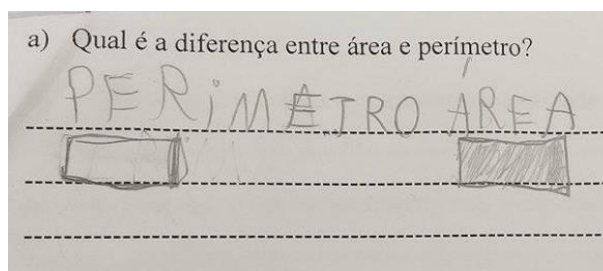 a) Qual é a diferença entre área e perímetro?
PERiMETRO ÁREA